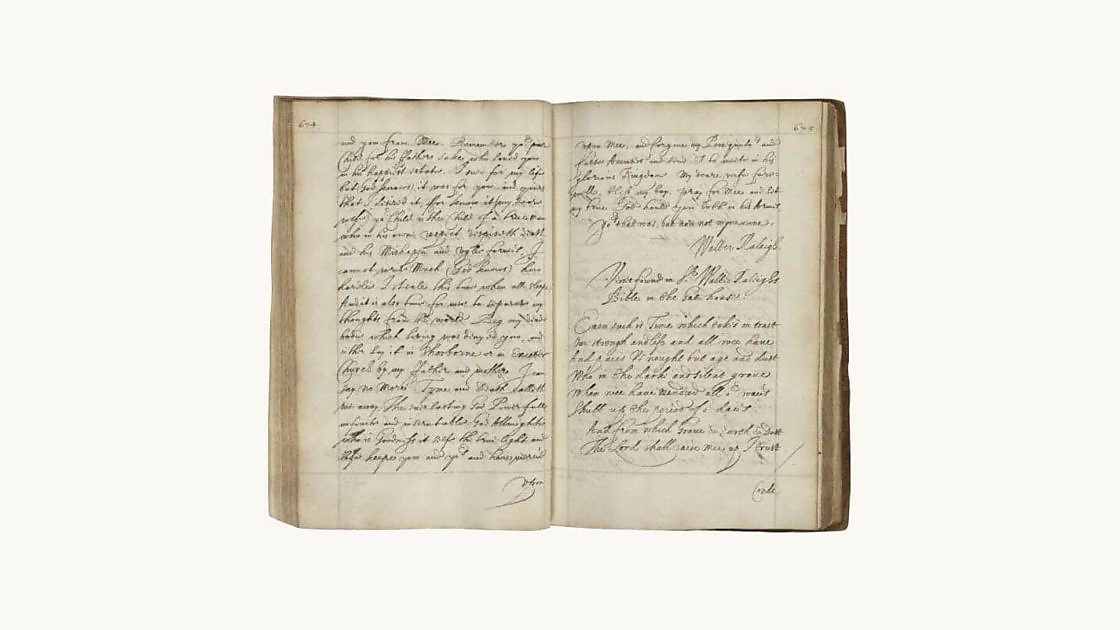 674
and you from Mee. Remember yo:r poor
Child for his fathers sake, who loved you
in his happiest estate. I sue for my life
but God knowes it was for you and yours
that I desired it, ffor know it my deare
wife yo:r Child is the Child of a true man
who in his owne respect despiseth death
and his Mishapen and formes, I
cannot write Much (God knows) how
hardlie I steale this time when all sleep
And it is also time for mee to separate my
thoughts from the world. Beg my dead
bodie which living was denyed you, and
either lay it in Sherborne or in Exeter
Church by my ffather and mother I can
say no More Tyme and Death calleth
me away. The everlasting God Powerfull
infinite and God Allmightie
who is Goodness it selfe the true light and
life keepe you and yo:rs and have mercie
Upon
675
upon Mee, and forgive my and
false Accusers and send us to meete in his
glorious Kingdom My deare wife fare-
well, bless my boy, pray for Mee and let
my true God hould you both in his Armes
yo:rs that was but now not myne owne.
Walter Raleigh.
Verses found in S:r Walter Raleighs
Bible in the Gate house.
Even such is Time which takes in trust
Our strength and all wee have
And paies us nought but age and dust
Who in the dark and silent grave
When wee have wandred all o:r waies
Shutt up the of o:r daies
And from which Grave & Earth & Dust
The Lord shall raise mee up I trust